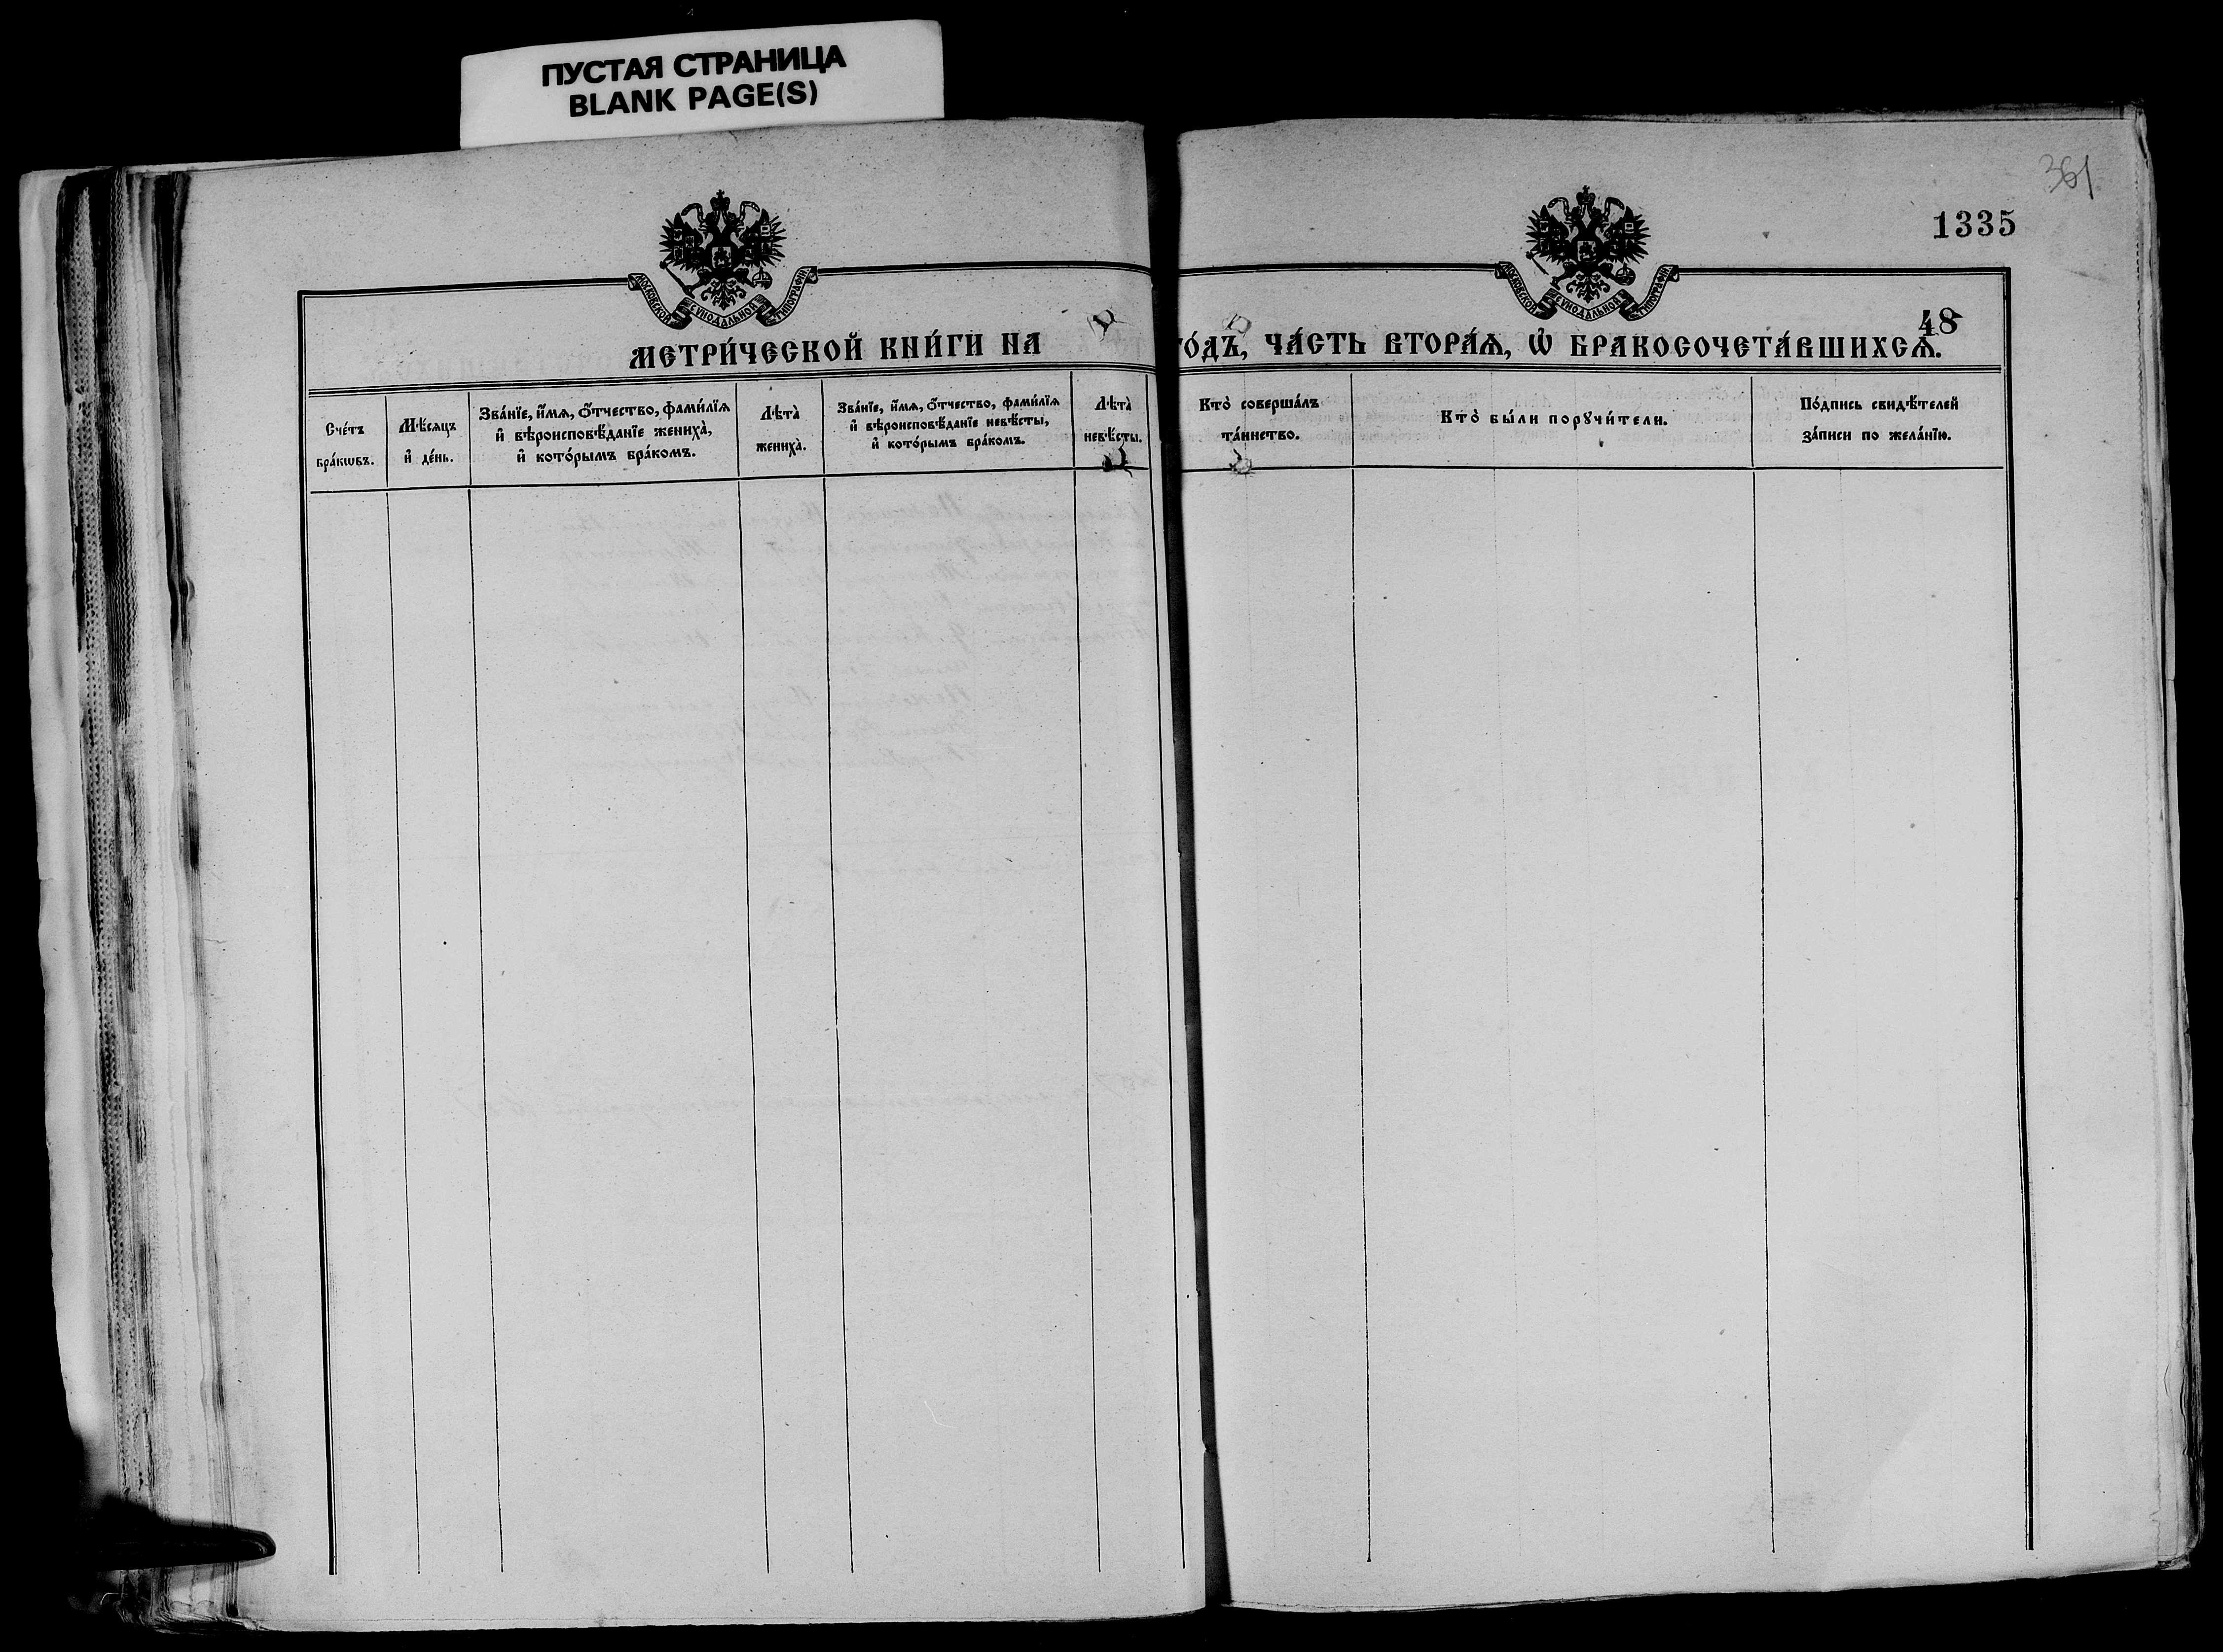 ПУСТАЯ СТРАНИЦА
BLANK PAGE(S)
361
1335
МОСКОВСКОЙ СѴНОДАЛЬНОЙ ТИПОГРАФІИ
МОСКОВСКОЙ СѴНОДАЛЬНОЙ ТИПОГРАФІИ
48
МЕТРИ́ЧЕСКОЙ КНИ́ГИ НА ГО́ДЪ, ЧА́СТЬ ВТОРА́Ѧ, Ѡ҆ БРАКОСОЧЕТА́ВШИХСѦ.
Сче́тъ
бра́кѡвъ.
Мѣ́сѧцъ
и҆ де́нь.
Зва́нїе, и҆́мѧ, ѻ҆́тчество, фами́лїѧ
и҆ вѣроисповѣ́данїе жениха̀,
и҆ кото́рымъ бра́комъ.
Лѣта̀
жениха̀.
Зва́нїе, и҆́мѧ, ѻ҆́тчество, фами́лїѧ
и҆ вѣроисповѣ́данїе невѣ́сты,
и҆ кото́рымъ бра́комъ.
Лѣта̀
невѣ́сты.
Кто̀ соверша́лъ
та́инство.
Кто̀ бы́ли порꙋчи́тели.
По́дпись свидѣ́телей
за́писи по жела́нїю.